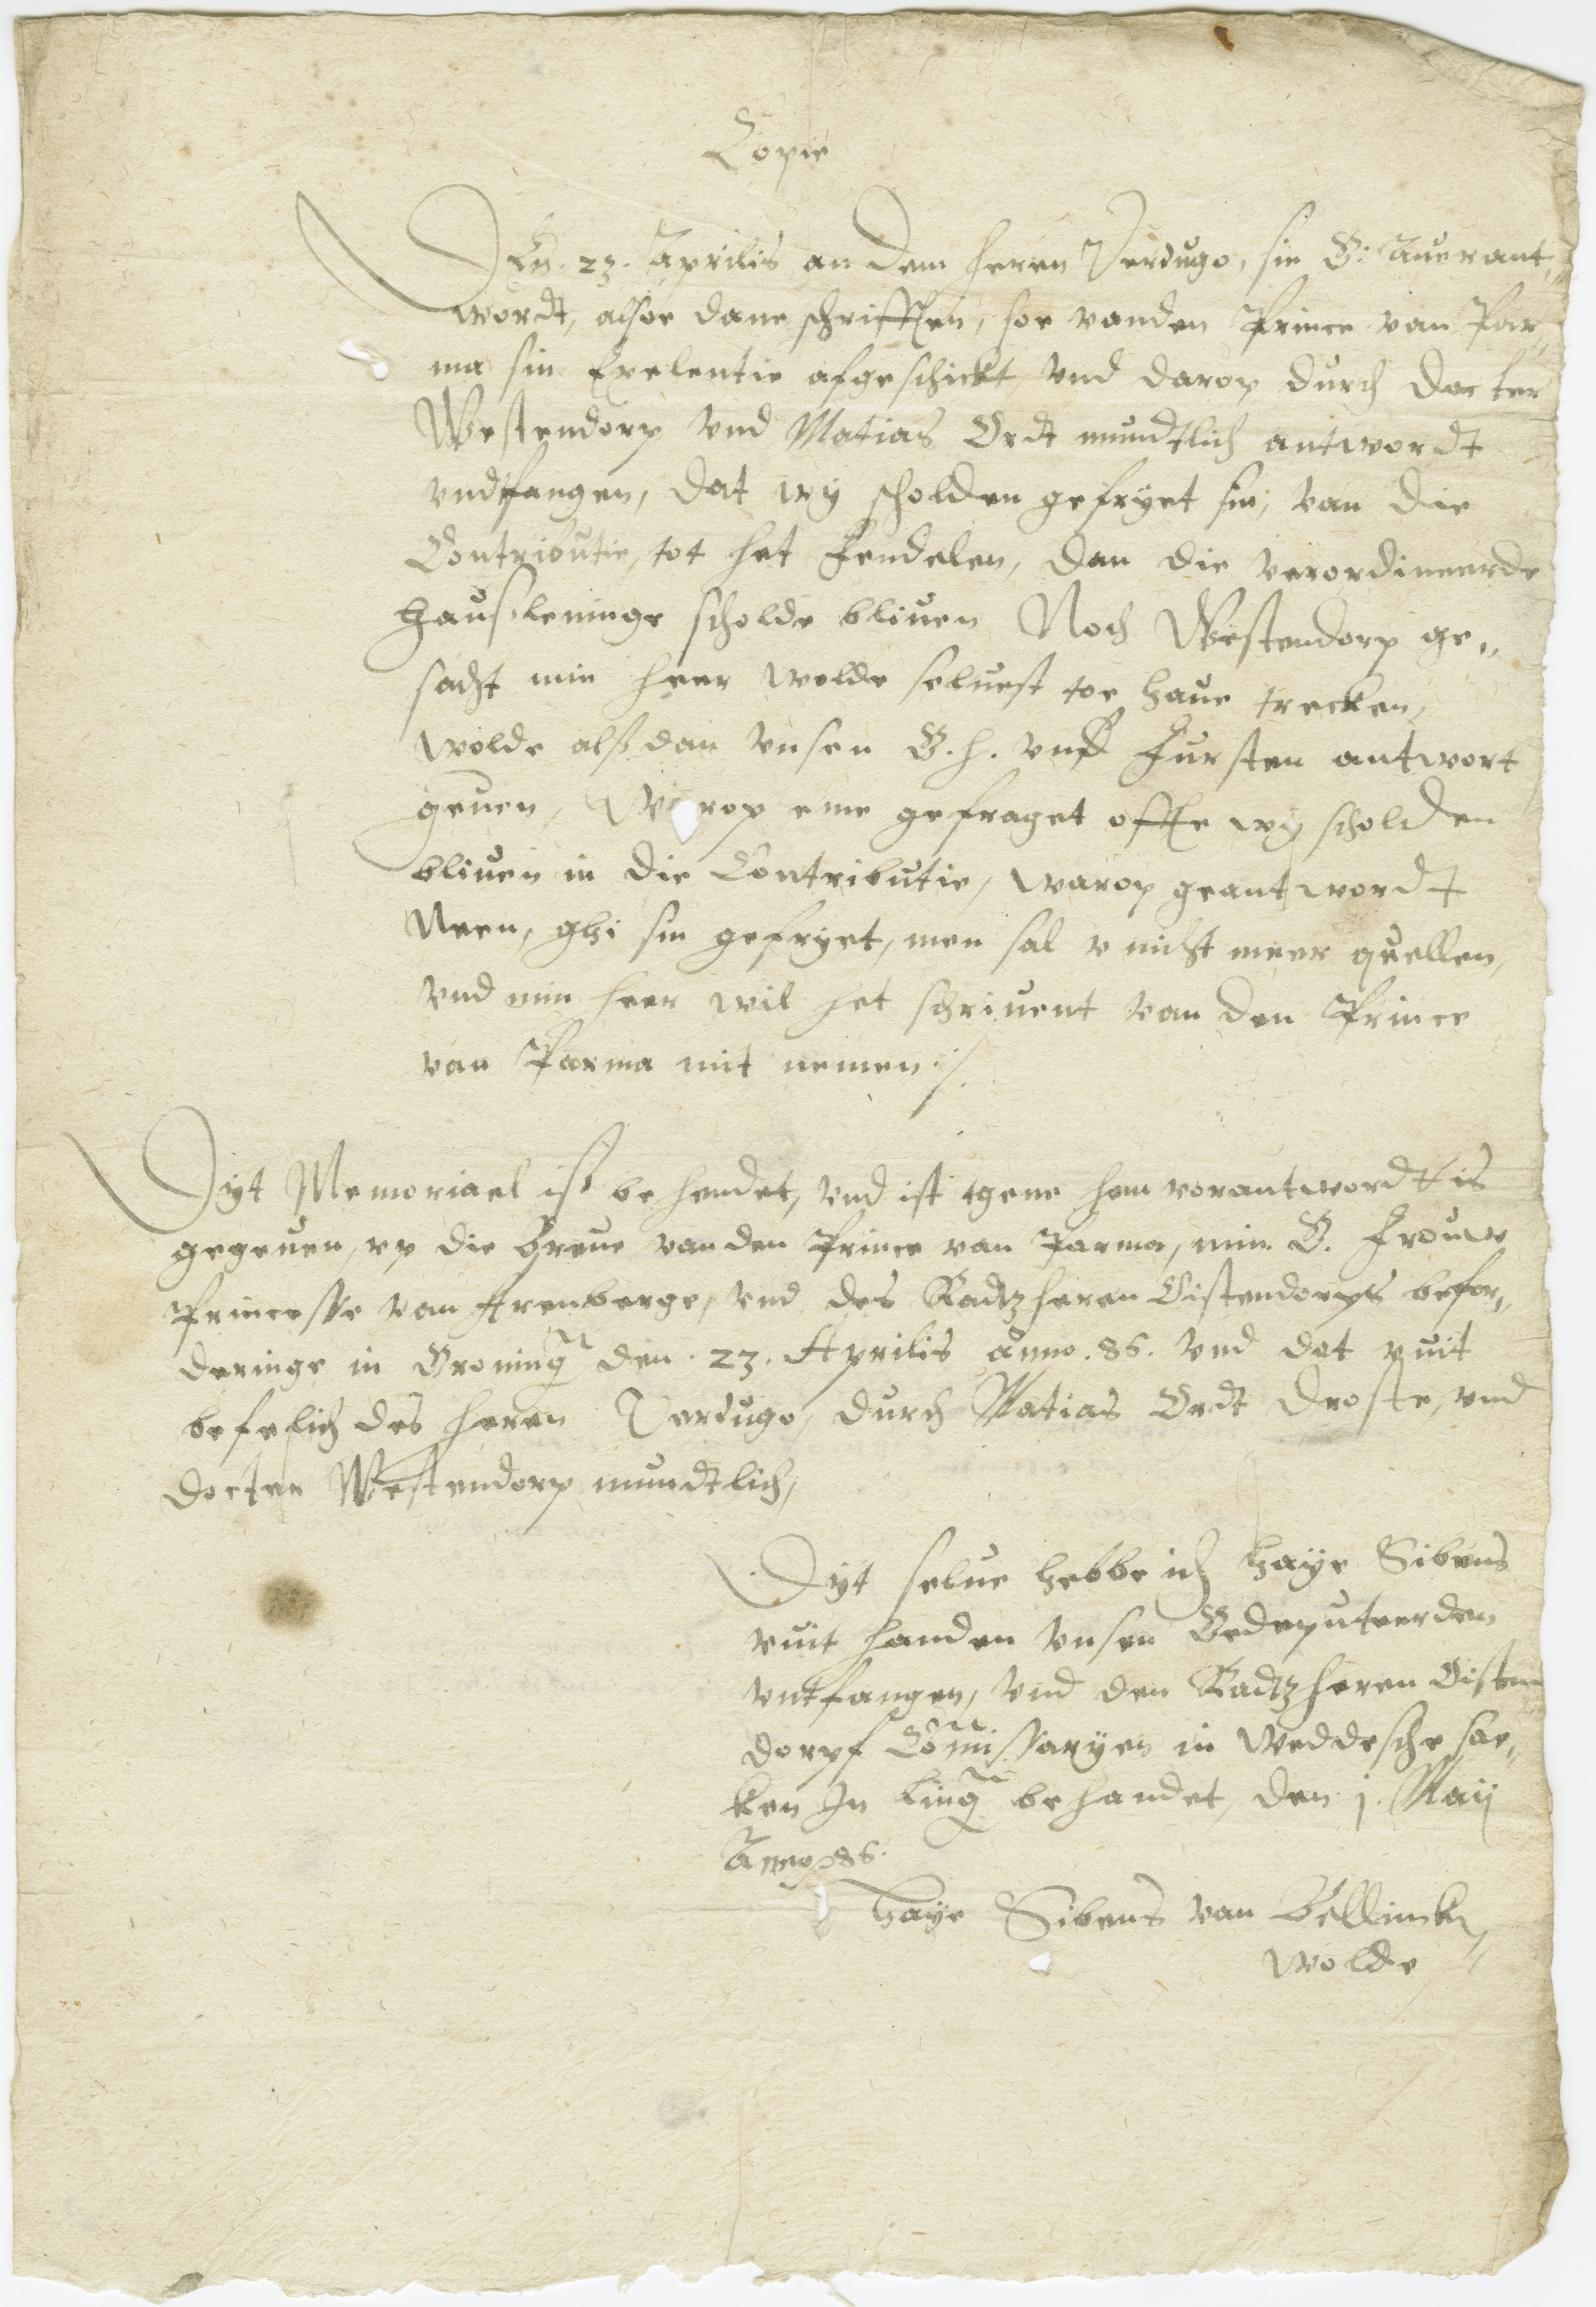 Copie
Den. 23. Aprilis an dem heren Verdugo, sin G. Auerant„
wordt, alsoe dane schrifften, soe vanden Prince van Par„
ma sin Exelentie afgeschickt vnd darop durch docter
Westendorp vnd Matias Ordt mundtlich antwordt
vndtfangen, dat wy scholden gefryet sin, van die
Contributie, tot het fendelen, dan die verordineerde
haußleninge scholde bliuen Noch Westendorp ge„
sacht min heer wolde seluest toe haue trecken,
wolde alß dan vnsen G. h. vnd Fursten antwort
geuen, Warop eme gefraget offte wy scholden
bliuen in die Contributie, warop geantwordt
Neen, ghi sin gefryet, men sal v nicht meer quellen,
vnd min heer wil het schriuent van den Prince
van Parma mit nemen ./.
Dyt Memoriael iß behendet, vnd ist tgene hem vorantwordt is
gegeuen, vp die breue van den Prince van Parma, min G. Frouw
Princesse van Arenberge, vnd des Radtzheren Oistendorps befor„
deringe in Groning den. 23. Aprilis anno. 86. vnd dat vuit
befelich des heren Verdugo, durch Matias Ordt droste, vnd
docter Westendorp mundtlich,
Dyt selue hebbe ich haye Sibens
vuit handen vnsen Gedeputeerden
vntfangen, vnd den Radtzheren Oisten
dorpf Comissaryen in Weddesche sae„
ken In Ling behandet, den 1. Maij
Anno 86.
haye Sibens van Bellinck„
wolde